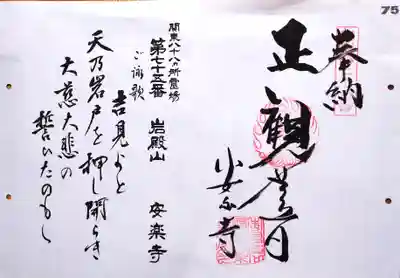 75
奉納
正観世音
安楽寺
関東八十八カ所霊場
第七十五番 岩殿山 安楽寺
ご詠歌
吉見よと
天乃岩戸を押し開らき
大慈大悲の
誓ひたのもし